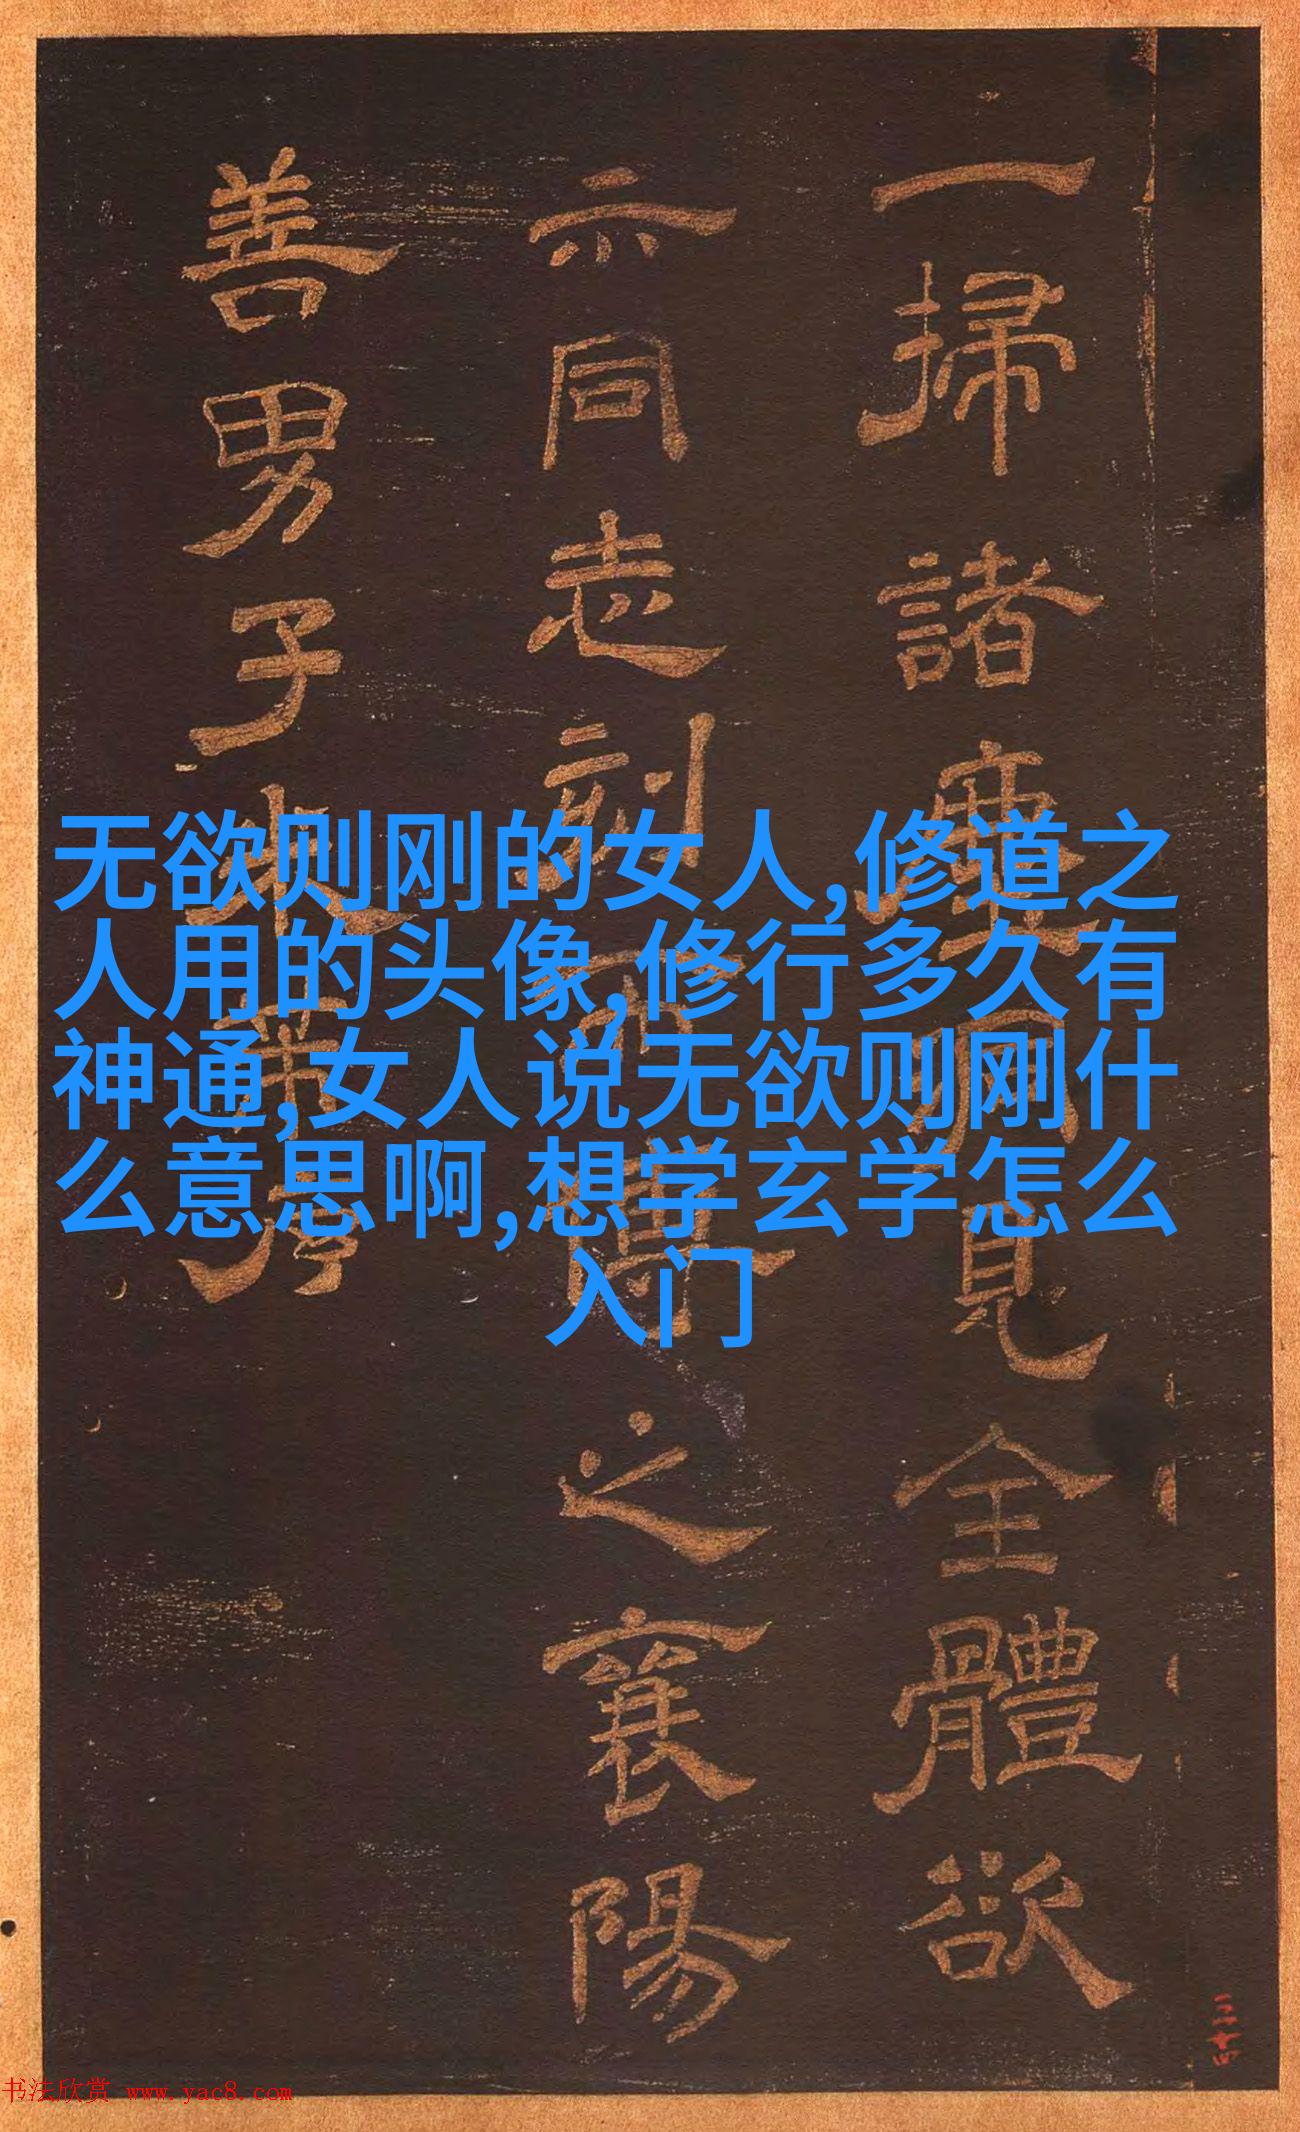 一掃諸塵洞見全體欲
示同志刻而傳之襄陽
善男子
无欲则刚的女人,修道之
人用的头像,修行多久有
神通,女人说无欲则刚什
么意思啊,想学玄学怎么
入门
三十四
书法欣赏 www.yac8.com